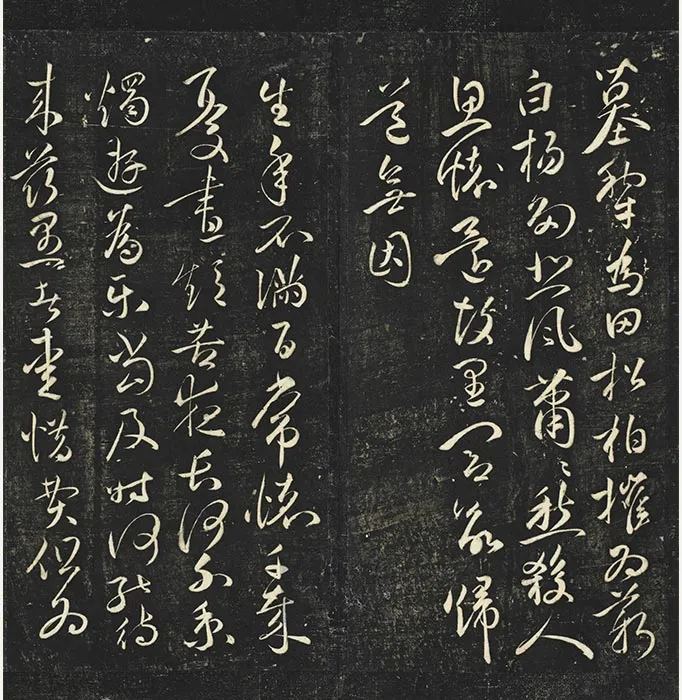 墓犁為田松柏摧為薪
白楊多悲風蕭〻愁殺人
思懷還故里閭欲歸
道無因
生年不滿百常懷千歲
憂晝短苦夜長何不秉
燭遊為樂當及時何能待
來茲愚者愛惜費但為